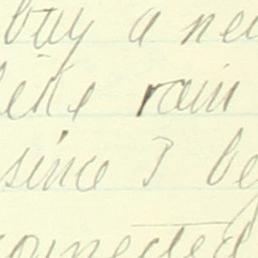 buy a ne
like rain
since I be
connected